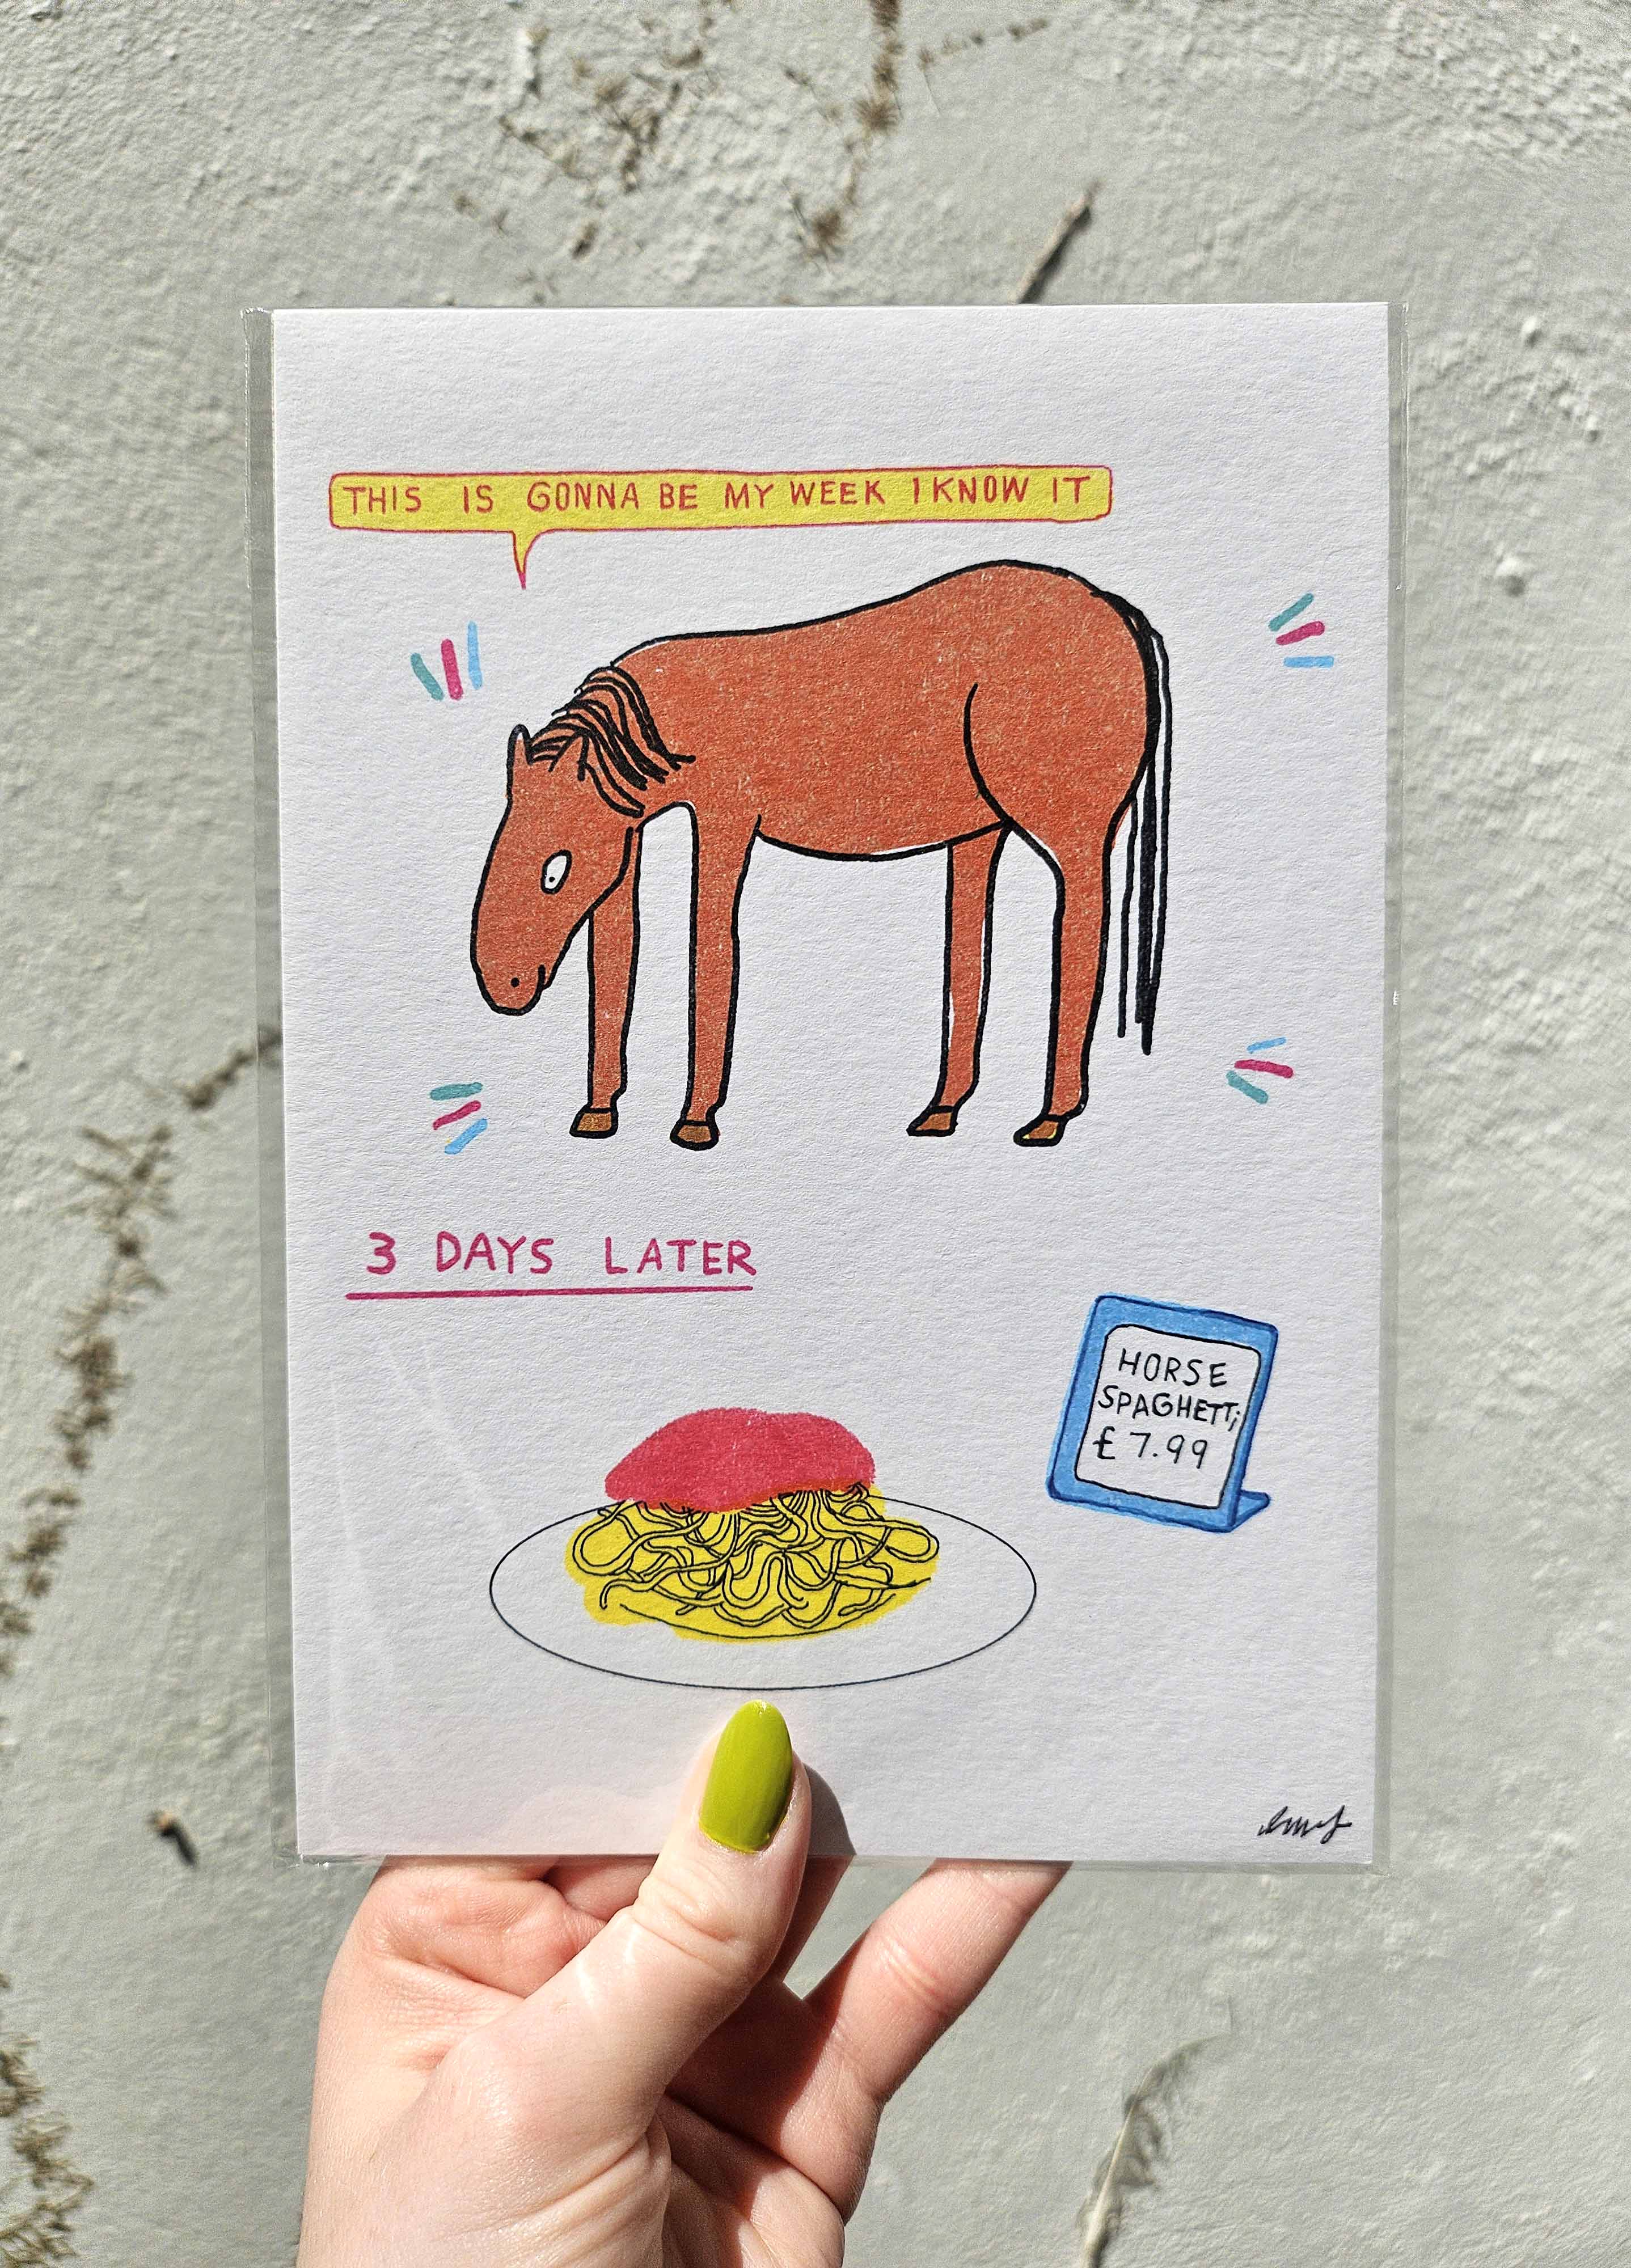 THIS IS GONNA BE MY WEEK I KNOW IT
3 DAYS LATER
HORSE
SPAGHETTi
£7.99